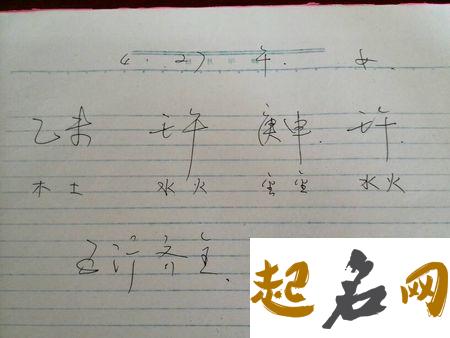 4. 27 午. 女
乙未 壬午 庚申. 壬午
木土 水火 金金 水火
五行齐全.
起名网